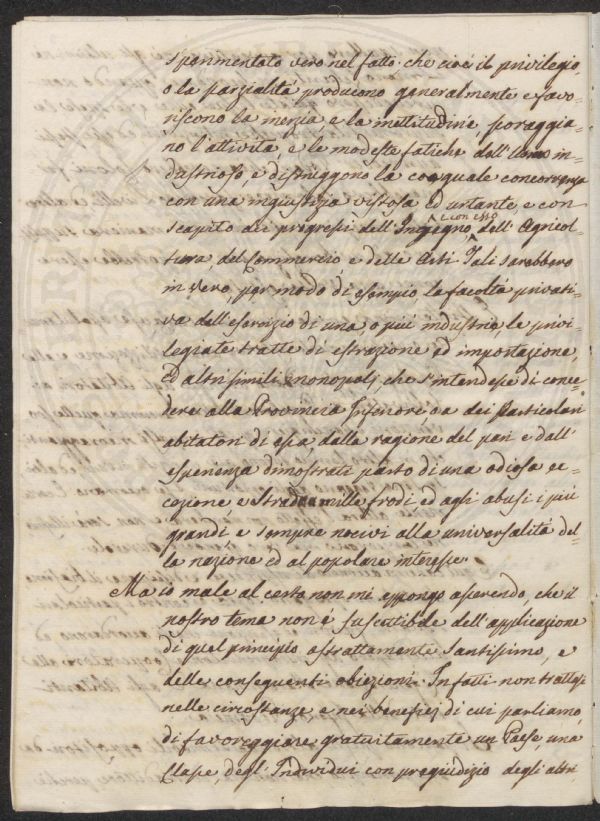 sparimentato vero nel fatto. che cioè il privilegio,
o la parzialità producono generalmente e favo=
riscono la inerzia e la inettitudine, scoraggia=
no l'attività, e le modeste fatiche dell'Uomo in=
dustrioso, e distruggono la coeguale concorrenza
con una ingiustizia vistosa ed urtante, e con
iscapito dei progressi dell'Ingegno, con esso dell'Agricol=
tura, del Commercio e delle Arti. Tali sarebbero
in vero, per modo di esempio, la facoltà privati=
va dell'esercizio di una, o più industrie, le privi=
legiate tratte di estrazione ed importazione,
ed altri simili monopolj che s'intendesse di conce=
dere alla Provincia Inferiore, o a dei Particolari
abitatori di essa, dalla ragione del pari e dall'
esperienza dimostrati parto di una odiosa ec=
cezione, e strada a mille frodi ed agli abusi i più
grandi, e sempre nocivi alla universalità del=
la nazione ed al popolare interesse.
Ma io male al certo non mi appongo asserendo, che il
nostro tema non è suscettibile dell'applicazione
di quel principio astrattamente santissimo, e
delle conseguenti obiezioni. Infatti non trattasi
nelle circostanze, e nei beneficj di cui parliamo,
di favoreggiare gratuitamente un Paese, una
Classe, degl'Individui con pregiudizio degli altri,